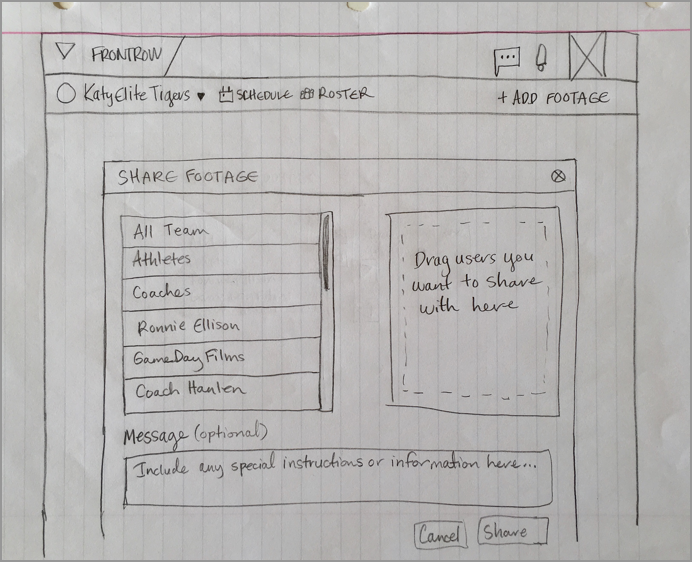 FRONTROW
Katy Elite Tigers SCHEDULE ROSTER + ADD FOOTAGE
SHARE FOOTAGE
All Team
Athletes
Coaches
Ronnie Ellison
GameDay Films
Coach Hanlen
Drag users you
want to share
with here
Message (optional)
Include any special instructions or information here...
Cancel Share